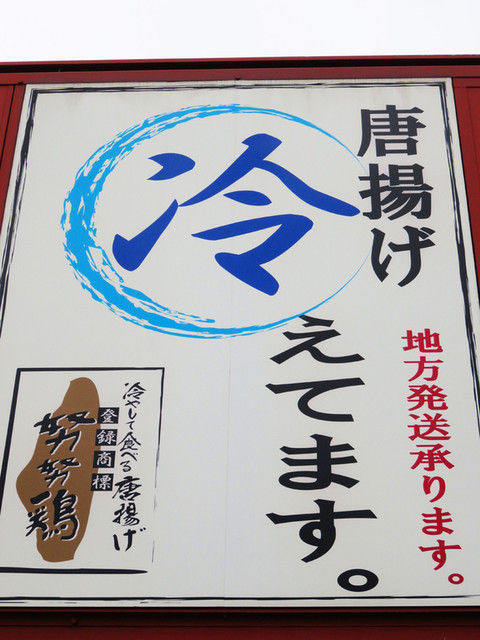 唐揚げ
冷えてます。
地方発送承ります。
冷やして食べる唐揚げ
登録商標
努努鶏